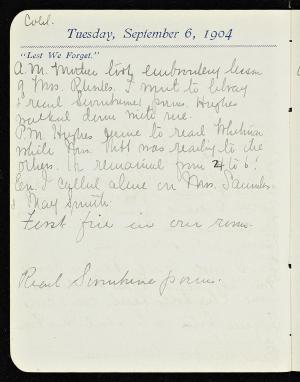 Cold.
Tuesday, September 6, 1904
"Lest We Forget."
A.M. Mother took embroidery lesson
of Mrs. Rhodes. I went to library
& read Swinburne poems. Hughes
walked down with me.
P.M. Hughes came to read Whitman
while Mrs. was reading to the
others. He remained from 4 to 6!
Ev. I called alone on Mrs. Saunders
& May Smith.
First fire in our room.
Read Swinburne poems.